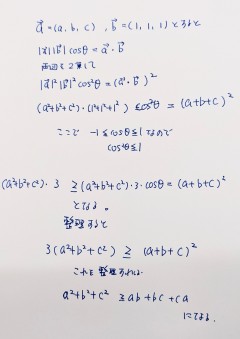 a⃗ = (a, b, c) , b⃗ = (1, 1, 1) とすると
|a⃗||b⃗|cosθ = a⃗・b⃗
両辺を2乗して
|a⃗|²|b⃗|²cos²θ = (a⃗・b⃗)²
(a²+b²+c²)・(1²+1²+1²) cos²θ = (a+b+c)²
ここで -1≦cosθ≦1 なので
cos²θ≦1
(a²+b²+c²)・3 ≧ (a²+b²+c²)・3・cosθ = (a+b+c)²
となる。
整理すると
3(a²+b²+c²) ≧ (a+b+c)²
これを 整理すれば
a²+b²+c² ≧ ab+bc+ca
になる。